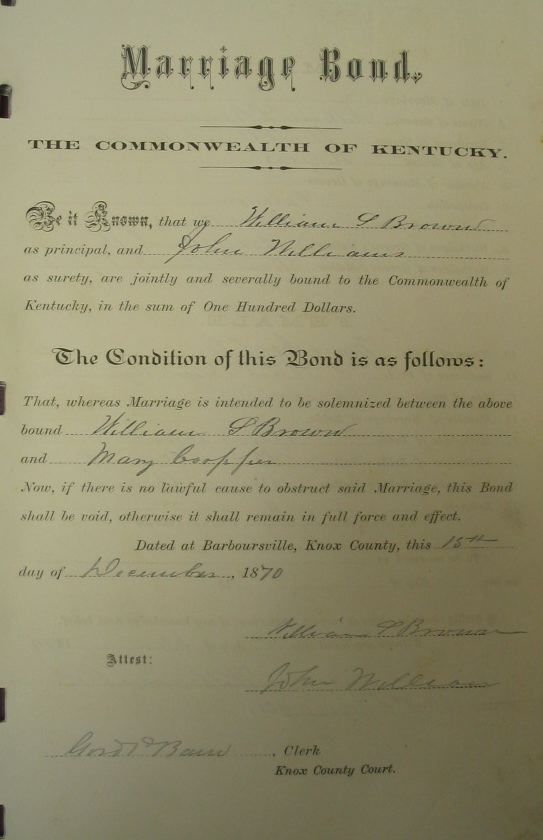 Marriage Bond.
THE COMMONWEALTH OF KENTUCKY.
Be it Known, that we William S Brown
as principal, and John Williams
as surety, are jointly and severally bound to the Commonwealth of
Kentucky, in the sum of One Hundred Dollars.
The Condition of this Bond is as follows:
That, whereas Marriage is intended to be solemnized between the above
bound William S Brown
and Mary
Now, if there is no lawful cause to obstruct said Marriage, this Bond
shall be void, otherwise it shall remain in full force and effect.
Dated at Barboursville, Knox County, this 15th
day of December, 1870
William S Brown
Attest:
John Williams
Clerk
Knox County Court.